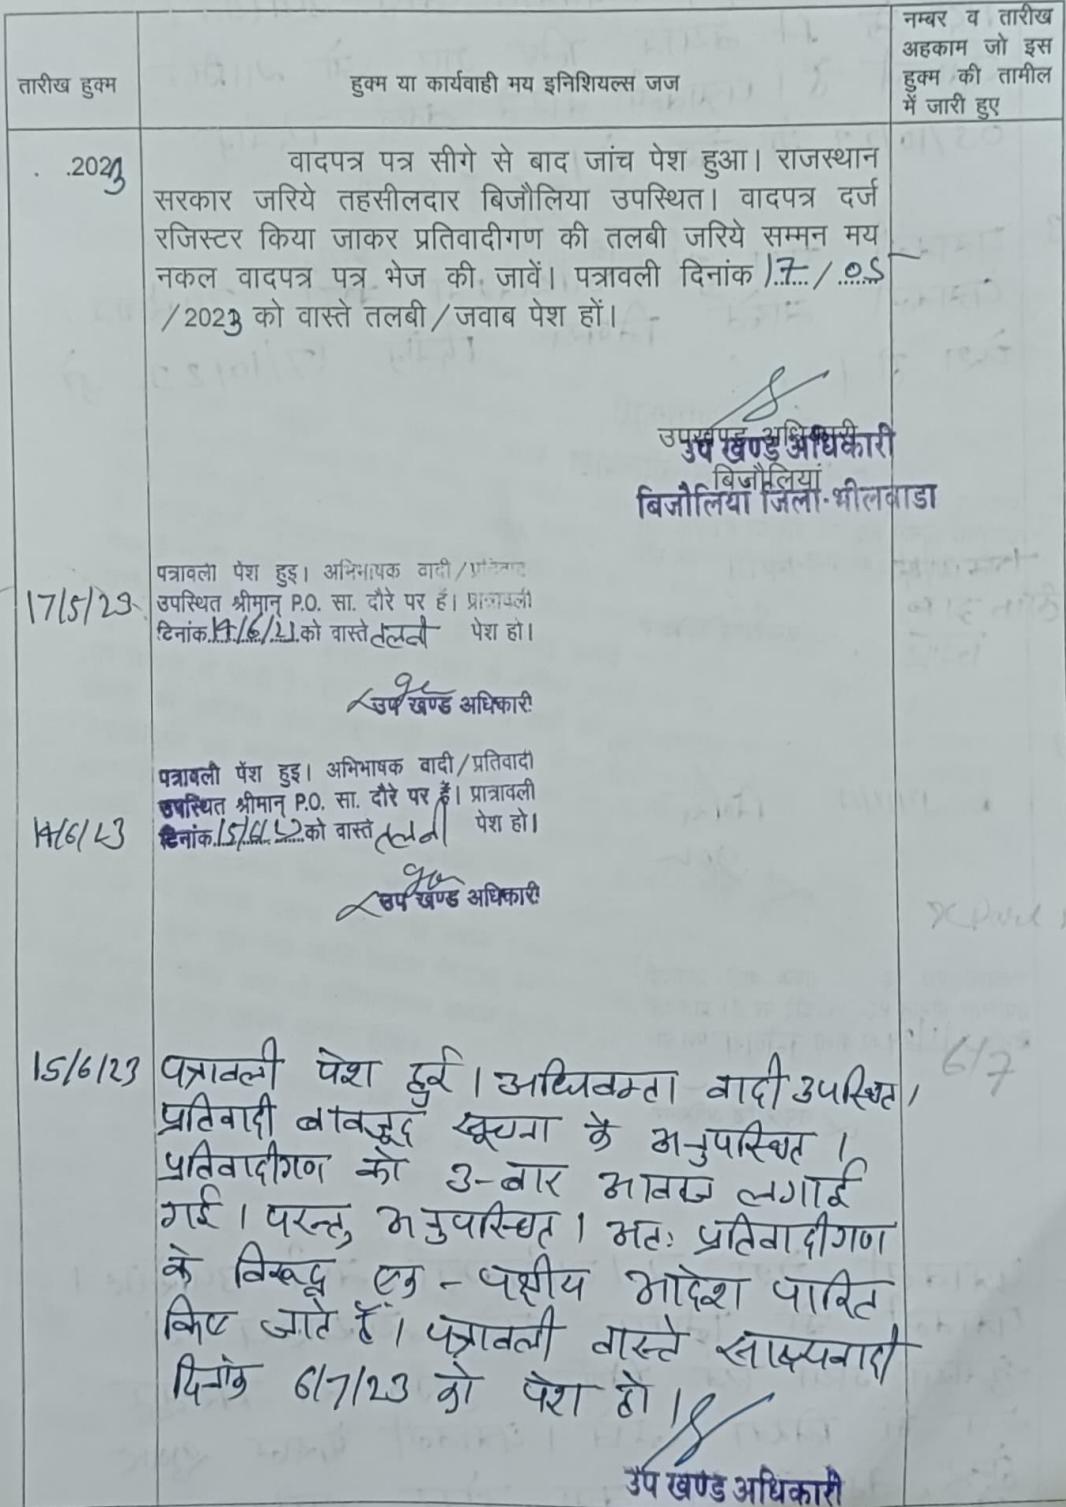 तारीख हुक्म
हुक्म या कार्यवाही मय इनिशियल्स जज
नम्बर व तारीख
अहकाम जो इस
हुक्म की तामील
में जारी हुए
. .2023
वादपत्र पत्र सीगे से बाद जांच पेश हुआ। राजस्थान
सरकार जरिये तहसीलदार बिजौलिया उपस्थित। वादपत्र दर्ज
रजिस्टर किया जाकर प्रतिवादीगण की तलबी जरिये सम्मन मय
नकल वादपत्र पत्र भेज की जावें। पत्रावली दिनांक 17 / 05
/2023 को वास्ते तलबी/जवाब पेश हों।
उपखण्ड अधिकारी
उप खण्ड अधिकारी
बिजौलियां
बिजौलिया जिला-भीलवाडा
पत्रावली पेश हुइ। अभिभाषक वादी/प्रतिवादी
17/5/23
उपस्थित श्रीमान् P.O. सा. दौरे पर हैं। प्रात्रावली
दिनांक 14/6/23 को वास्ते तलबी पेश हो।
उप खण्ड अधिकारी
पत्रावली पेंश हुइ। अभिभाषक वादी/प्रतिवादी
उपस्थित श्रीमान् P.O. सा. दौरे पर हैं। प्रात्रावली
14/6/23
दिनांक 15/6/23 को वास्ते तलबी पेश हो।
उप खण्ड अधिकारी
15/6/23
पत्रावली पेश हुई। अधिवक्ता वादी उपस्थित।
प्रतिवादी बावजूद सूचना के अनुपस्थित।
प्रतिवादीगण को 3-बार आवाज लगाई
गई। परन्तु अनुपस्थित। अतः प्रतिवादीगण
के विरूद्ध एक-पक्षीय आदेश पारित
किए जाते हैं। पत्रावली वास्ते साक्ष्यवादी
दिनांक 6/7/23 को पेश हो।
उप खण्ड अधिकारी
6/7